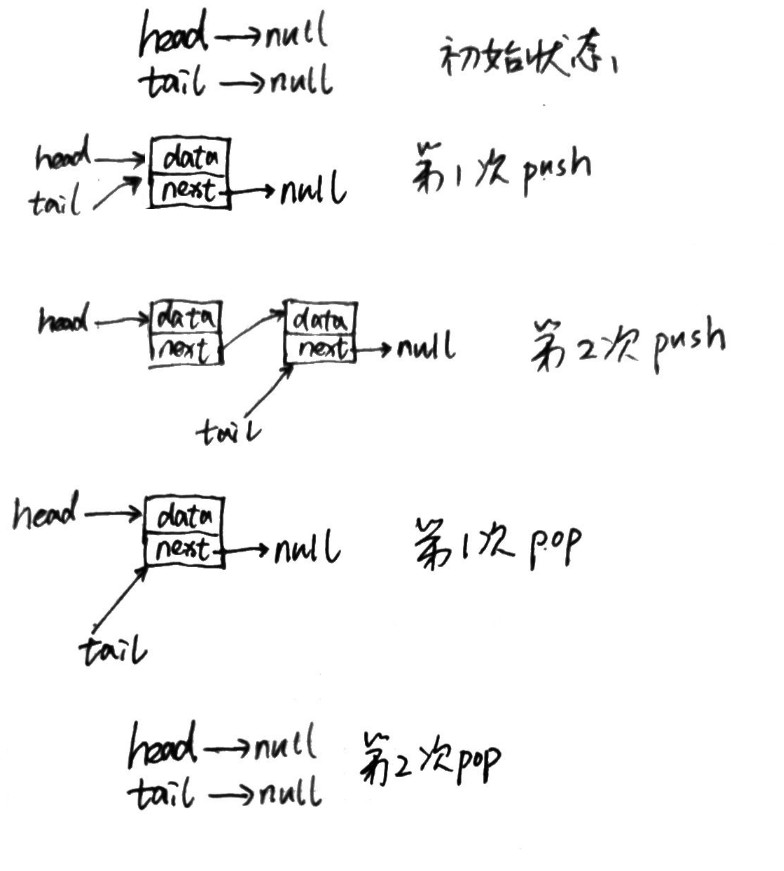 head → null
tail → null
初始状态
head → data
tail
next → null
第1次 push
head → data
data
next
next → null
第2次 push
tail
head → data
next → null
第1次 pop
tail
head → null
tail → null
第2次 pop